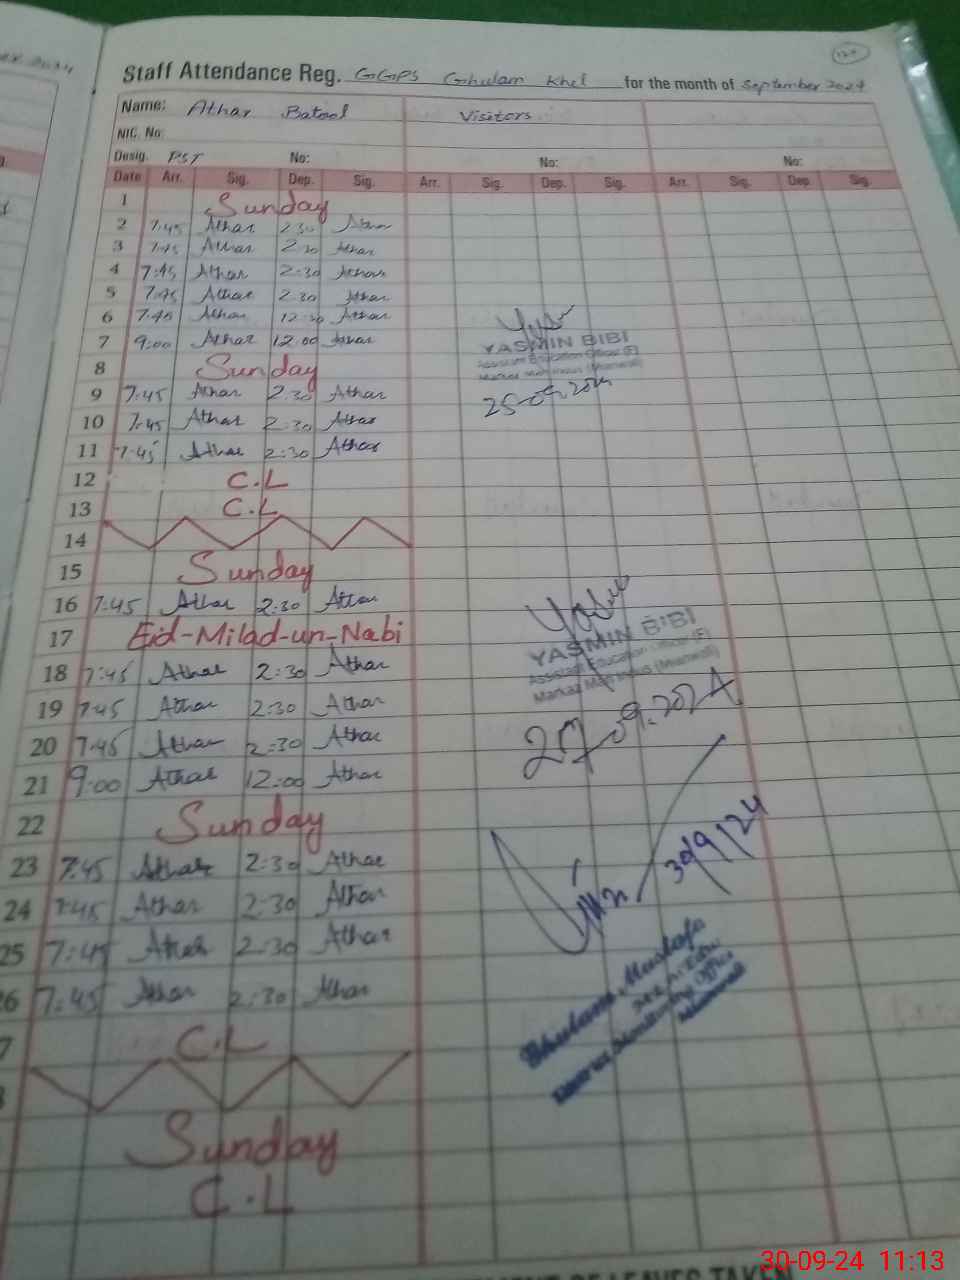 Staff Attendance Reg. GGPS Ghulam Khel for the month of September 2024
Name: Athar Batool Visitors
NIC. No:
Desig. PST No: No: No:
Date Arr. Sig. Dep. Sig. Arr. Sig. Dep. Sig. Arr. Sig. Dep. Sig.
1 Sunday
2 7:45 Athar 2:30 Athar
3 7:45 Athar 2:30 Athar
4 7:45 Athar 2:30 Athar
5 7:45 Athar 2:30 Athar
6 7:45 Athar 12:30 Athar
7 9:00 Athar 12:00 Athar
YASMIN BIBI
Assistant Education Officer (F)
8 Sunday
25-09-2024
9 7:45 Athar 2:30 Athar
10 7:45 Athar 2:30 Athar
11 7:45 Athar 2:30 Athar
12 C.L
13 C.L
14
15 Sunday
16 7:45 Athar 2:30 Athar
17 Eid-Milad-un-Nabi
YASMIN BIBI
Assistant Education Officer (F)
Markaz Indus (Mianwali)
18 7:45 Athar 2:30 Athar
19 7:45 Athar 2:30 Athar
27-09-2024
20 7:45 Athar 2:30 Athar
21 9:00 Athar 12:00 Athar
22 Sunday
30/9/24
23 7:45 Athar 2:30 Athar
24 7:45 Athar 2:30 Athar
25 7:45 Athar 2:30 Athar
26 7:45 Athar 2:30 Athar
Ghulam Mustafa
Monitoring Office
7 C.L
8
Sunday
C.L
30-09-24 11:13
OF LEAVES TAKEN